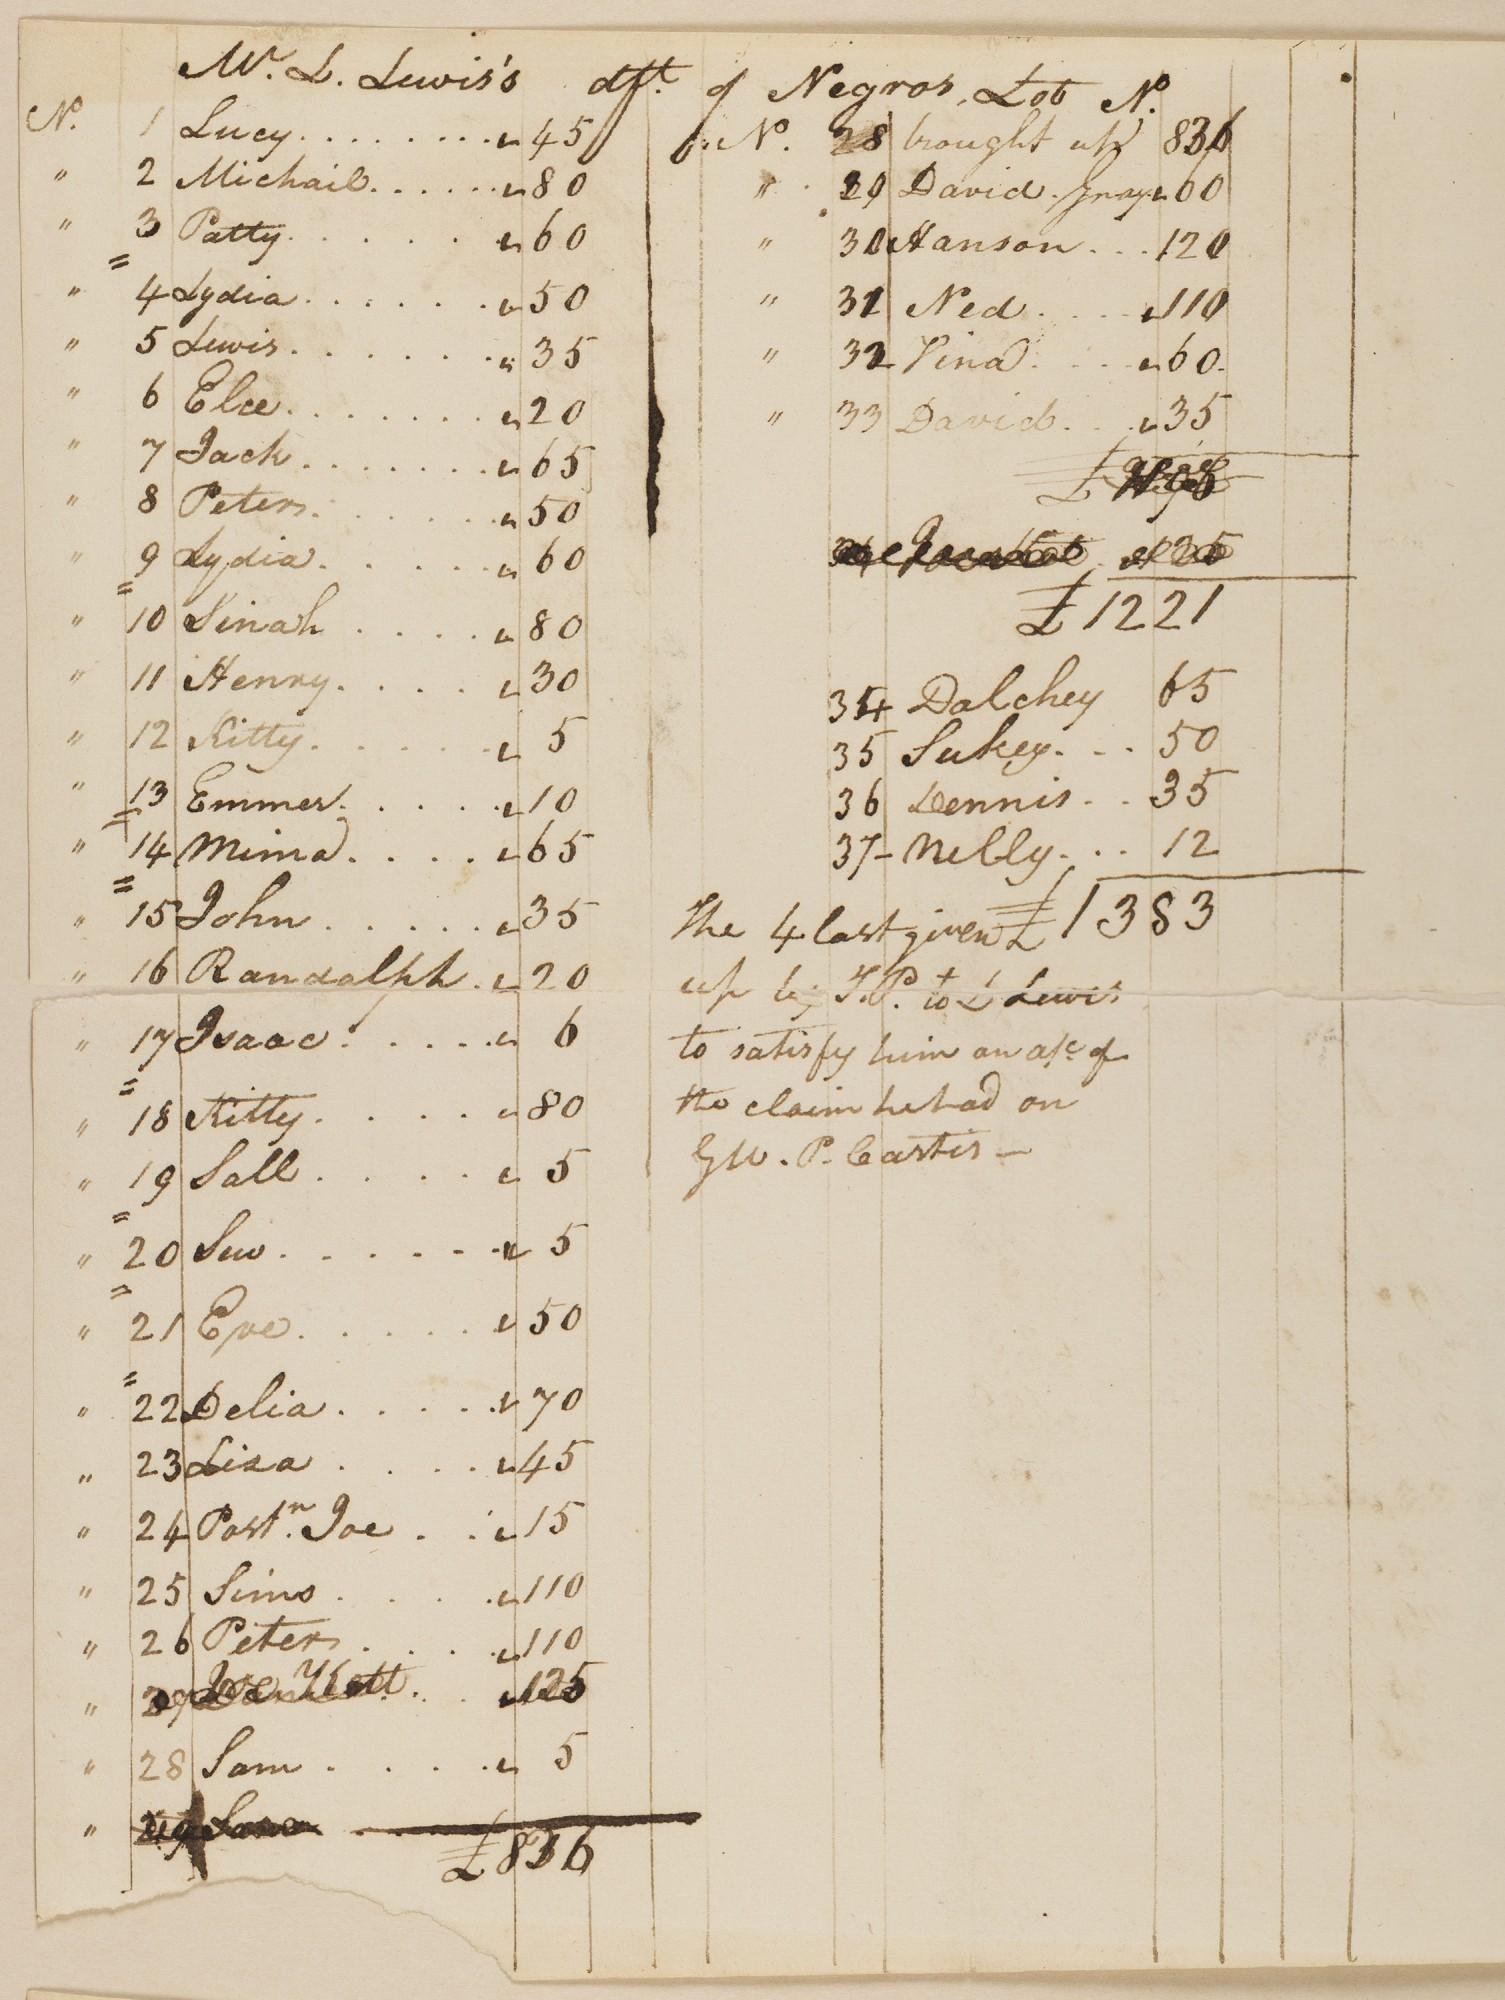 Mr. L. Lewis's dft. of Negros, Lot No.
No. 1 Lucy " 45
" 2 Michail " 80
" 3 Patty " 60
" 4 Lydia " 50
" 5 Lewis " 35
" 6 Elce " 20
" 7 Jack " 65
" 8 Peter " 50
" 9 Lydia " 60
" 10 Sinah " 80
" 11 Henry " 30
" 12 Kitty " 5
" 13 Emmer " 10
" 14 Mima " 65
" 15 John " 35
" 16 Randalph " 20
" 17 Isaac " 6
" 18 Kitty " 80
" 19 Sall " 5
" 20 Suo " 5
" 21 Eve " 50
" 22 Delia " 70
" 23 Liza " 45
" 24 Postn. Joe " 15
" 25 Sims " 110
" 26 Peter " 110
" 125
" 28 Sam " 5
" 29
£ 836
No. 28 brought up 836
" 29 David Gray " 60
" 30 Hanson 120
" 31 Ned " 110
" 32 Vina " 60
" 33 David " 35
£
£ 1221
34 Dalchey 65
35 Sukey 50
36 Dennis 35
37 - Nelly 12
£ 1383
The 4 last given
up by T.P. to L Lewis
to satisfy him on a/c of
the claim he had on
G.W. P. Custis -